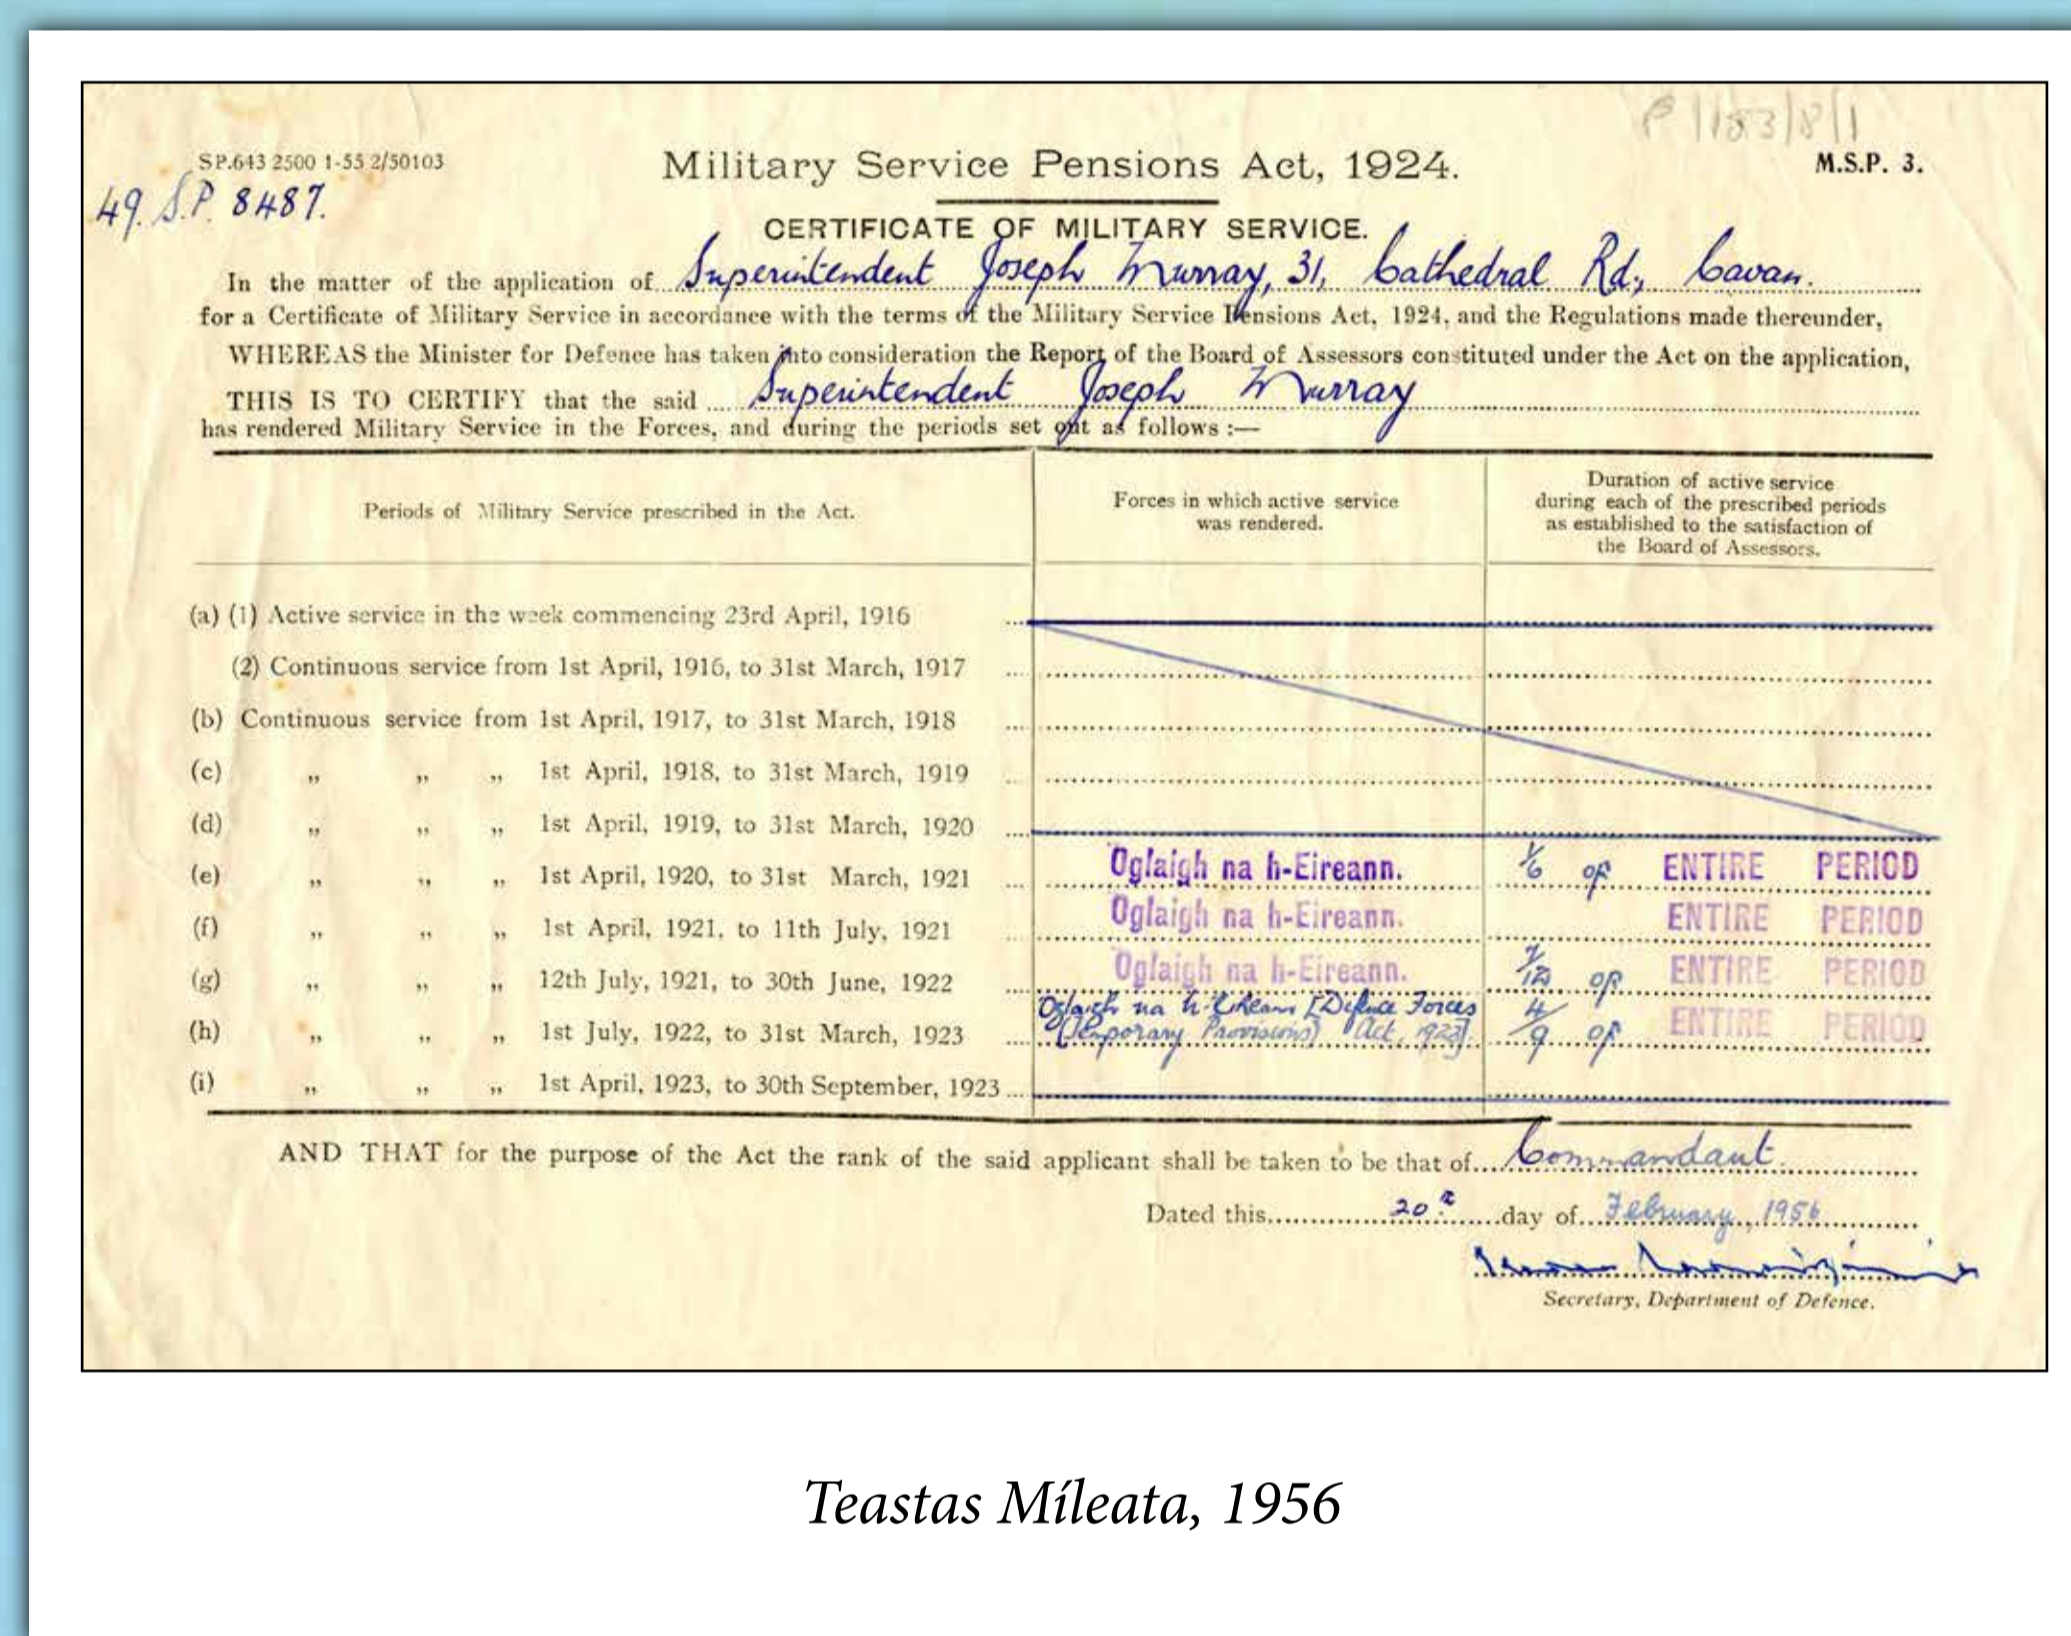 P1183/8/1
SP.643 2500 1-55 2/50103
Military Service Pensions Act, 1924.
M.S.P. 3.
49. S.P. 8487.
CERTIFICATE OF MILITARY SERVICE.
In the matter of the application of Superintendent Joseph Murray, 31, Cathedral Rd., Cavan.
for a Certificate of Military Service in accordance with the terms of the Military Service Pensions Act, 1924, and the Regulations made thereunder,
WHEREAS the Minister for Defence has taken into consideration the Report of the Board of Assessors constituted under the Act on the application,
THIS IS TO CERTIFY that the said Superintendent Joseph Murray
has rendered Military Service in the Forces, and during the periods set out as follows :—
Periods of Military Service prescribed in the Act.
Forces in which active service
was rendered.
Duration of active service
during each of the prescribed periods
as established to the satisfaction of
the Board of Assessors.
(a) (1) Active service in the week commencing 23rd April, 1916
(2) Continuous service from 1st April, 1916, to 31st March, 1917
(b) Continuous service from 1st April, 1917, to 31st March, 1918
(c) „ „ „ 1st April, 1918, to 31st March, 1919
(d) „ „ „ 1st April, 1919, to 31st March, 1920
(e) „ „ „ 1st April, 1920, to 31st March, 1921 Oglaigh na h-Eireann. 1/6 of ENTIRE PERIOD
(f) „ „ „ 1st April, 1921, to 11th July, 1921 Oglaigh na h-Eireann. ENTIRE PERIOD
(g) „ „ „ 12th July, 1921, to 30th June, 1922 Oglaigh na h-Eireann. 7/12 of ENTIRE PERIOD
(h) „ „ „ 1st July, 1922, to 31st March, 1923 Oglaigh na h-Eireann [Defence Forces 4/9 of ENTIRE PERIOD
(Temporary Provisions) Act, 1923].
(i) „ „ „ 1st April, 1923, to 30th September, 1923
AND THAT for the purpose of the Act the rank of the said applicant shall be taken to be that of Commandant.
Dated this 20th day of February, 1956
Secretary, Department of Defence.
Teastas Míleata, 1956